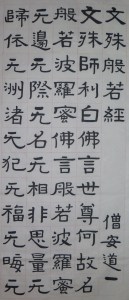 文殊般若經 僧安道一
文殊師利白佛言世尊何故名
般若波羅蜜佛言般若波羅蜜
无邊无際无名无相非思量无
歸依无洲渚无犯无福无晦无